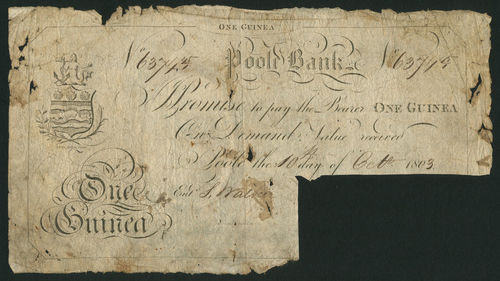 ONE GUINEA
No 63715 Poole Bank No 63715
I Promise to pay the Bearer ONE GUINEA
On Demand, Value received
Poole the 10th day of Octr 1803
One
Guinea
Entd